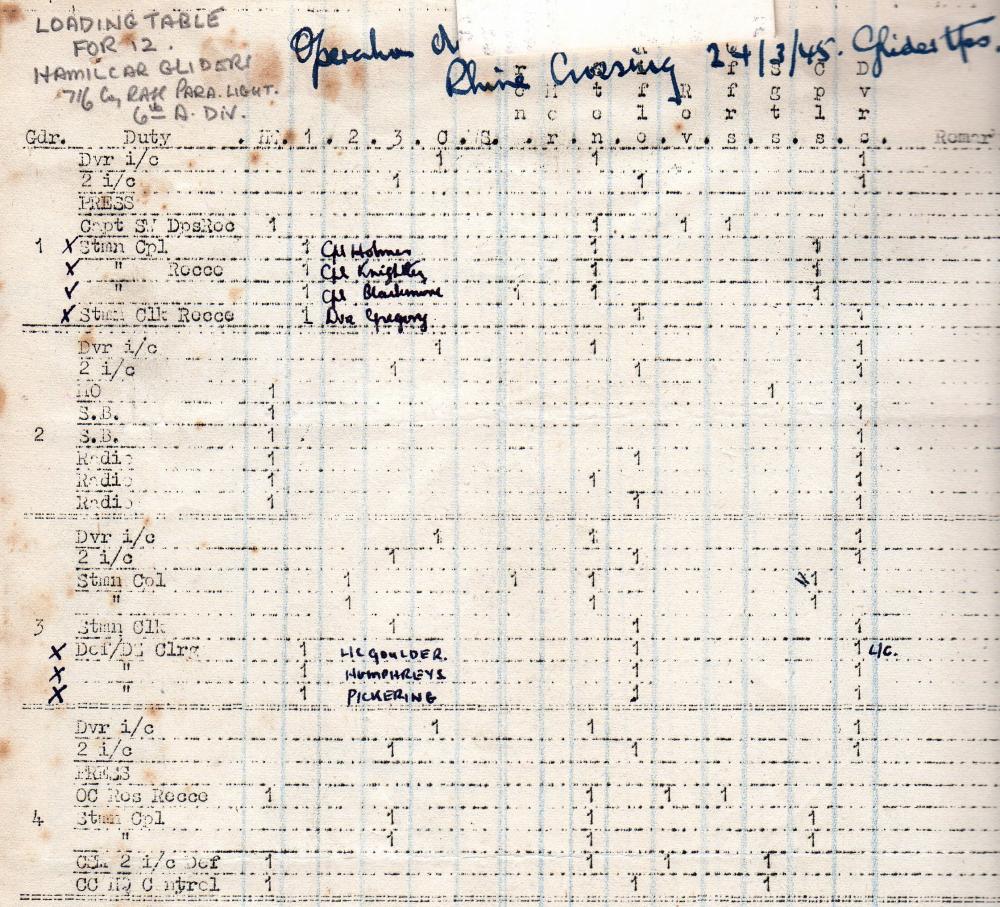 LOADING TABLE
FOR 12.
HAMILCAR GLIDERS
716 Coy RASC PARA. LIGHT.
6th A. DIV.
Operation
Rhine Crossing 24/3/45. Glider Ups
Gdr. Duty 1. 2. 3. C. S.
Dvr i/c 1 1 1
2 i/c 1 1 1
PRESS
Capt SW DpsRec 1 1 1 1
1 X Stmn Cpl 1 Cpl Holmes 1 1
X " Recce 1 Cpl Knightley 1 1
✓ " 1 Cpl Blackmore 1 1 1
X Stmn Clk Recce 1 Dvr Gregory 1 1
Dvr i/c 1 1 1
2 i/c 1 1 1
MO 1 1
S.B. 1 1
2 S.B. 1 1
Radio 1 1 1
Radio 1 1 1
Radio 1 1 1
Dvr i/c 1 1 1
2 i/c 1 1 1
Stmn Cpl 1 1 1 1
" 1 1 1
3 Stmn Clk 1 1 1
X Def/DZ Clrg 1 L/C GOULDER. 1 1 L/C.
X " 1 HUMPHREYS 1 1
X " 1 PICKERING 1 1
Dvr i/c 1 1 1
2 i/c 1 1 1
PRESS
OC Res Recce 1 1 1 1
4 Stmn Cpl 1 1 1
" 1 1 1
CSM 2 i/c Def 1 1 1 1
CC HQ Control 1 1 1